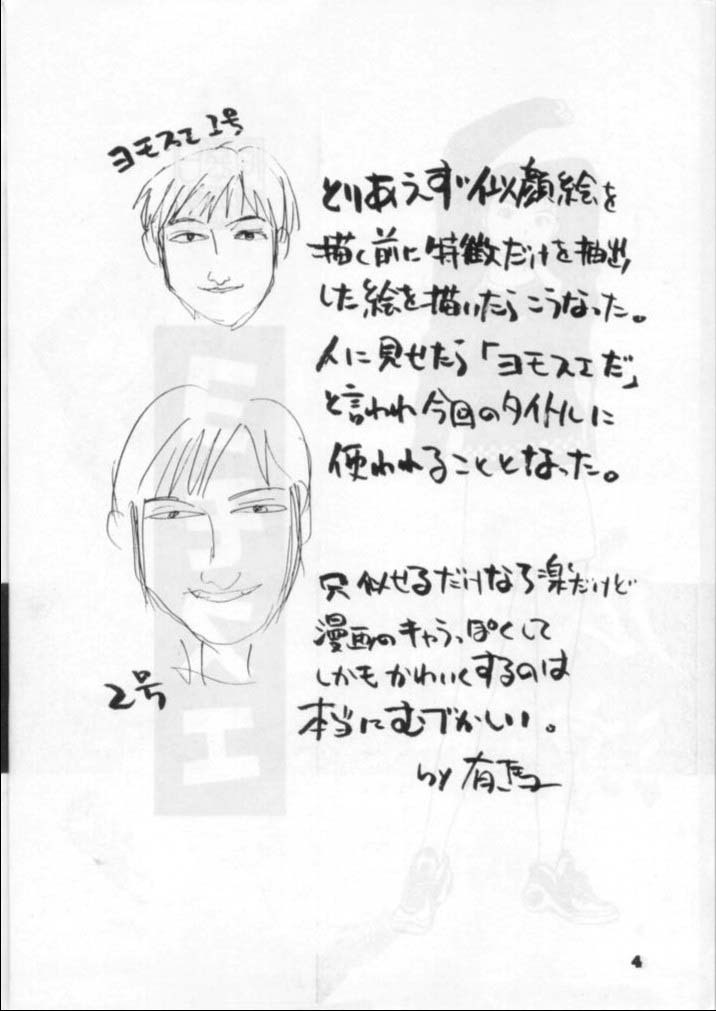 ヨモスエ1号
とりあえず似顔絵を
描く前に特徴だけを抽出
した絵を描いたらこうなった。
人に見せたら「ヨモスエだ」
と言われ今回のタイトルに
使われることとなった。
只似せるだけなら楽だけど
漫画のキャラっぽくして
しかもかわいくするのは
本当にむづかしい。
by 有馬
2号
ヨモスエ
4